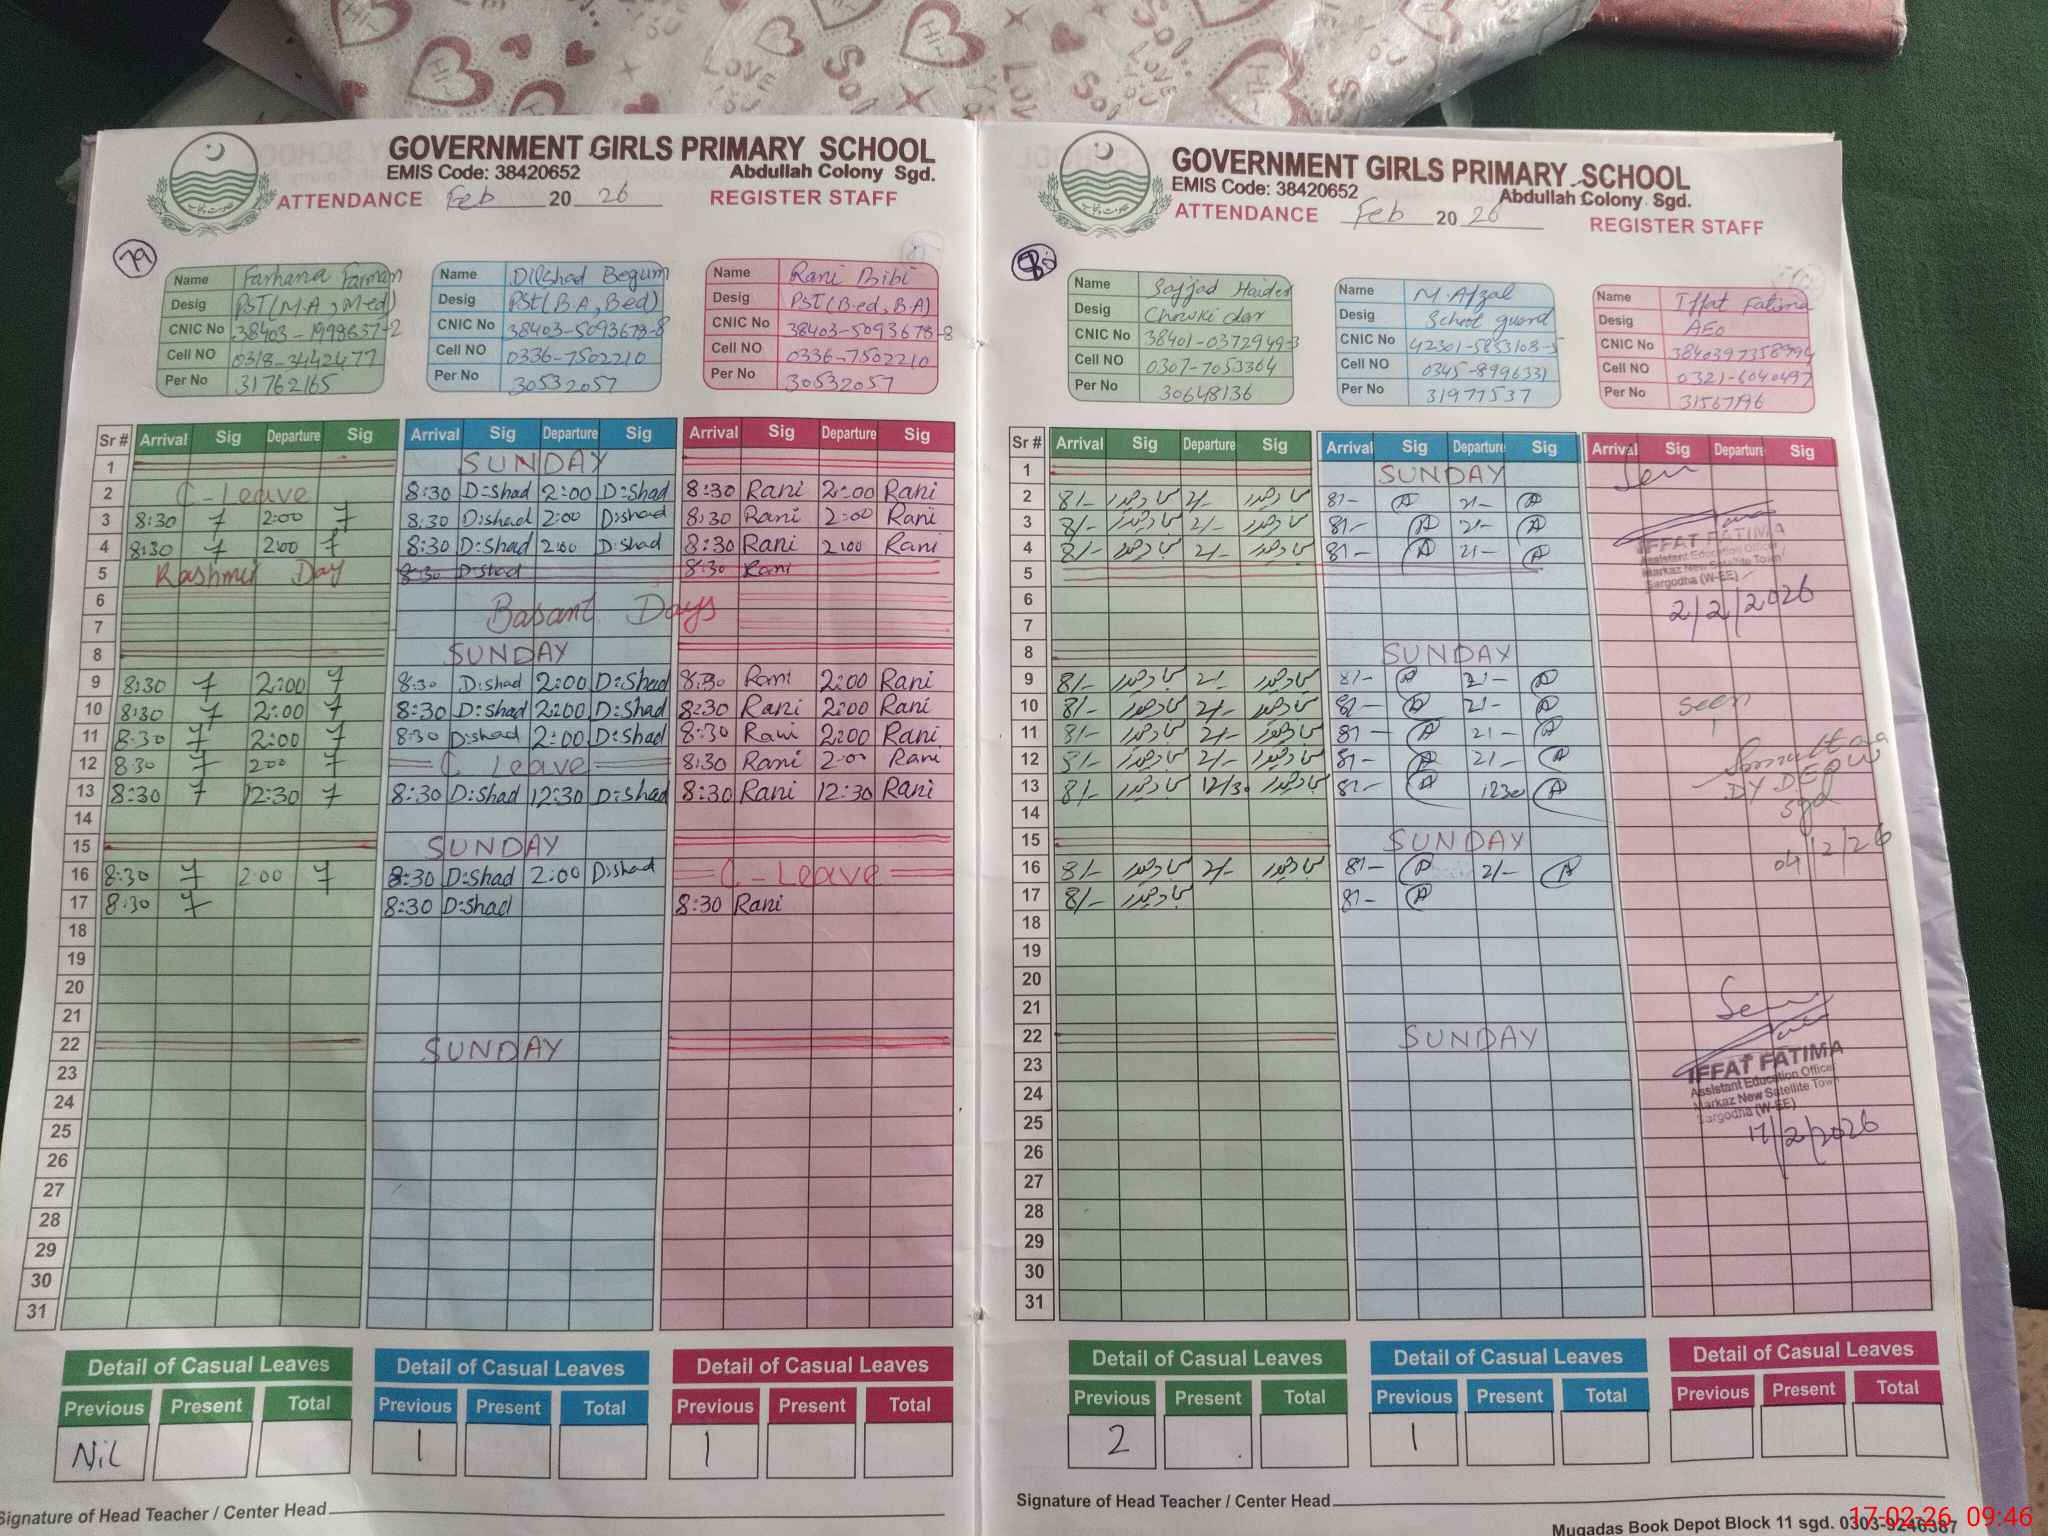 GOVERNMENT GIRLS PRIMARY SCHOOL
EMIS Code: 38420652 Abdullah Colony Sgd.
ATTENDANCE Feb 20 26 REGISTER STAFF
79
Name Farhana Farman
Desig PST(M.A, M.ed)
CNIC No 38403-1998637-2
Cell NO 0318-3442477
Per No 31762165
Name Dilshad Begum
Desig PST(B.A, Bed)
CNIC No 38403-5093678-8
Cell NO 0336-7502210
Per No 30532057
Name Rani Bibi
Desig PST(B.ed, B.A)
CNIC No 38403-5093678-8
Cell NO 0336-7502210
Per No 30532057
Sr # Arrival Sig Departure Sig Arrival Sig Departure Sig Arrival Sig Departure Sig
1 SUNDAY
2 C-Leave 8:30 D:shad 2:00 D:shad 8:30 Rani 2:00 Rani
3 8:30 7 2:00 7 8:30 D:shad 2:00 D:shad 8:30 Rani 2:00 Rani
4 8:30 7 2:00 7 8:30 D:shad 2:00 D:shad 8:30 Rani 2:00 Rani
5 Kashmir Day 8:30 D:shad 8:30 Rani
6 Basant Days
7
8 SUNDAY
9 8:30 7 2:00 7 8:30 D:shad 2:00 D:shad 8:30 Rani 2:00 Rani
10 8:30 7 2:00 7 8:30 D:shad 2:00 D:shad 8:30 Rani 2:00 Rani
11 8:30 7 2:00 7 8:30 D:shad 2:00 D:shad 8:30 Rani 2:00 Rani
12 8:30 7 2:00 7 C Leave 8:30 Rani 2:00 Rani
13 8:30 7 12:30 7 8:30 D:shad 12:30 D:shad 8:30 Rani 12:30 Rani
14
15 SUNDAY
16 8:30 7 2:00 7 8:30 D:shad 2:00 D:shad C-Leave
17 8:30 7 8:30 D:shad 8:30 Rani
18
19
20
21
22 SUNDAY
23
24
25
26
27
28
29
30
31
Detail of Casual Leaves Detail of Casual Leaves Detail of Casual Leaves
Previous Present Total Previous Present Total Previous Present Total
Nil 1 1
Signature of Head Teacher / Center Head
GOVERNMENT GIRLS PRIMARY SCHOOL
EMIS Code: 38420652 Abdullah Colony Sgd.
ATTENDANCE Feb 20 26 REGISTER STAFF
80
Name Sajjad Haider
Desig Chowkidar
CNIC No 38401-0372949-3
Cell NO 0307-7053364
Per No 30648136
Name M.Afzal
Desig School guard
CNIC No 42301-5853108-5
Cell NO 0345-8996331
Per No 31977537
Name Iffat Fatima
Desig AEO
CNIC No
Cell NO 0321-6040497
Per No 31567196
Sr # Arrival Sig Departure Sig Arrival Sig Departure Sig Arrival Sig Departure Sig
1 SUNDAY
2 8/- سجاد حیدر 2/- سجاد حیدر 8/- A 2/- A
3 8/- سجاد حیدر 2/- سجاد حیدر 8/- A 2/- A
4 8/- سجاد حیدر 2/- سجاد حیدر 8/- A 2/- A
5
6
7
8 SUNDAY
9 8/- سجاد حیدر 2/- سجاد حیدر 8/- A 2/- A
10 8/- سجاد حیدر 2/- سجاد حیدر 8/- A 2/- A
11 8/- سجاد حیدر 2/- سجاد حیدر 8/- A 2/- A
12 8/- سجاد حیدر 2/- سجاد حیدر 8/- A 2/- A
13 8/- سجاد حیدر 12/30 سجاد حیدر 8/- A 1230 A
14
15 SUNDAY
16 8/- سجاد حیدر 2/- سجاد حیدر 8/- A 2/- A
17 8/- سجاد حیدر 8/- A
18
19
20
21
22 SUNDAY
23
24
25
26
27
28
29
30
31
IFFAT FATIMA
Assistant Education Officer
Markaz New Satellite Town
Sargodha (W-EE)
2/2/2026
Seen
DY DEO W
sgd
04/2/26
IFFAT FATIMA
Assistant Education Officer
Markaz New Satellite Town
Sargodha (W-EE)
17/2/2026
Detail of Casual Leaves Detail of Casual Leaves Detail of Casual Leaves
Previous Present Total Previous Present Total Previous Present Total
2 1
Signature of Head Teacher / Center Head
Muqadas Book Depot Block 11 sgd.
17-02-26 09:46